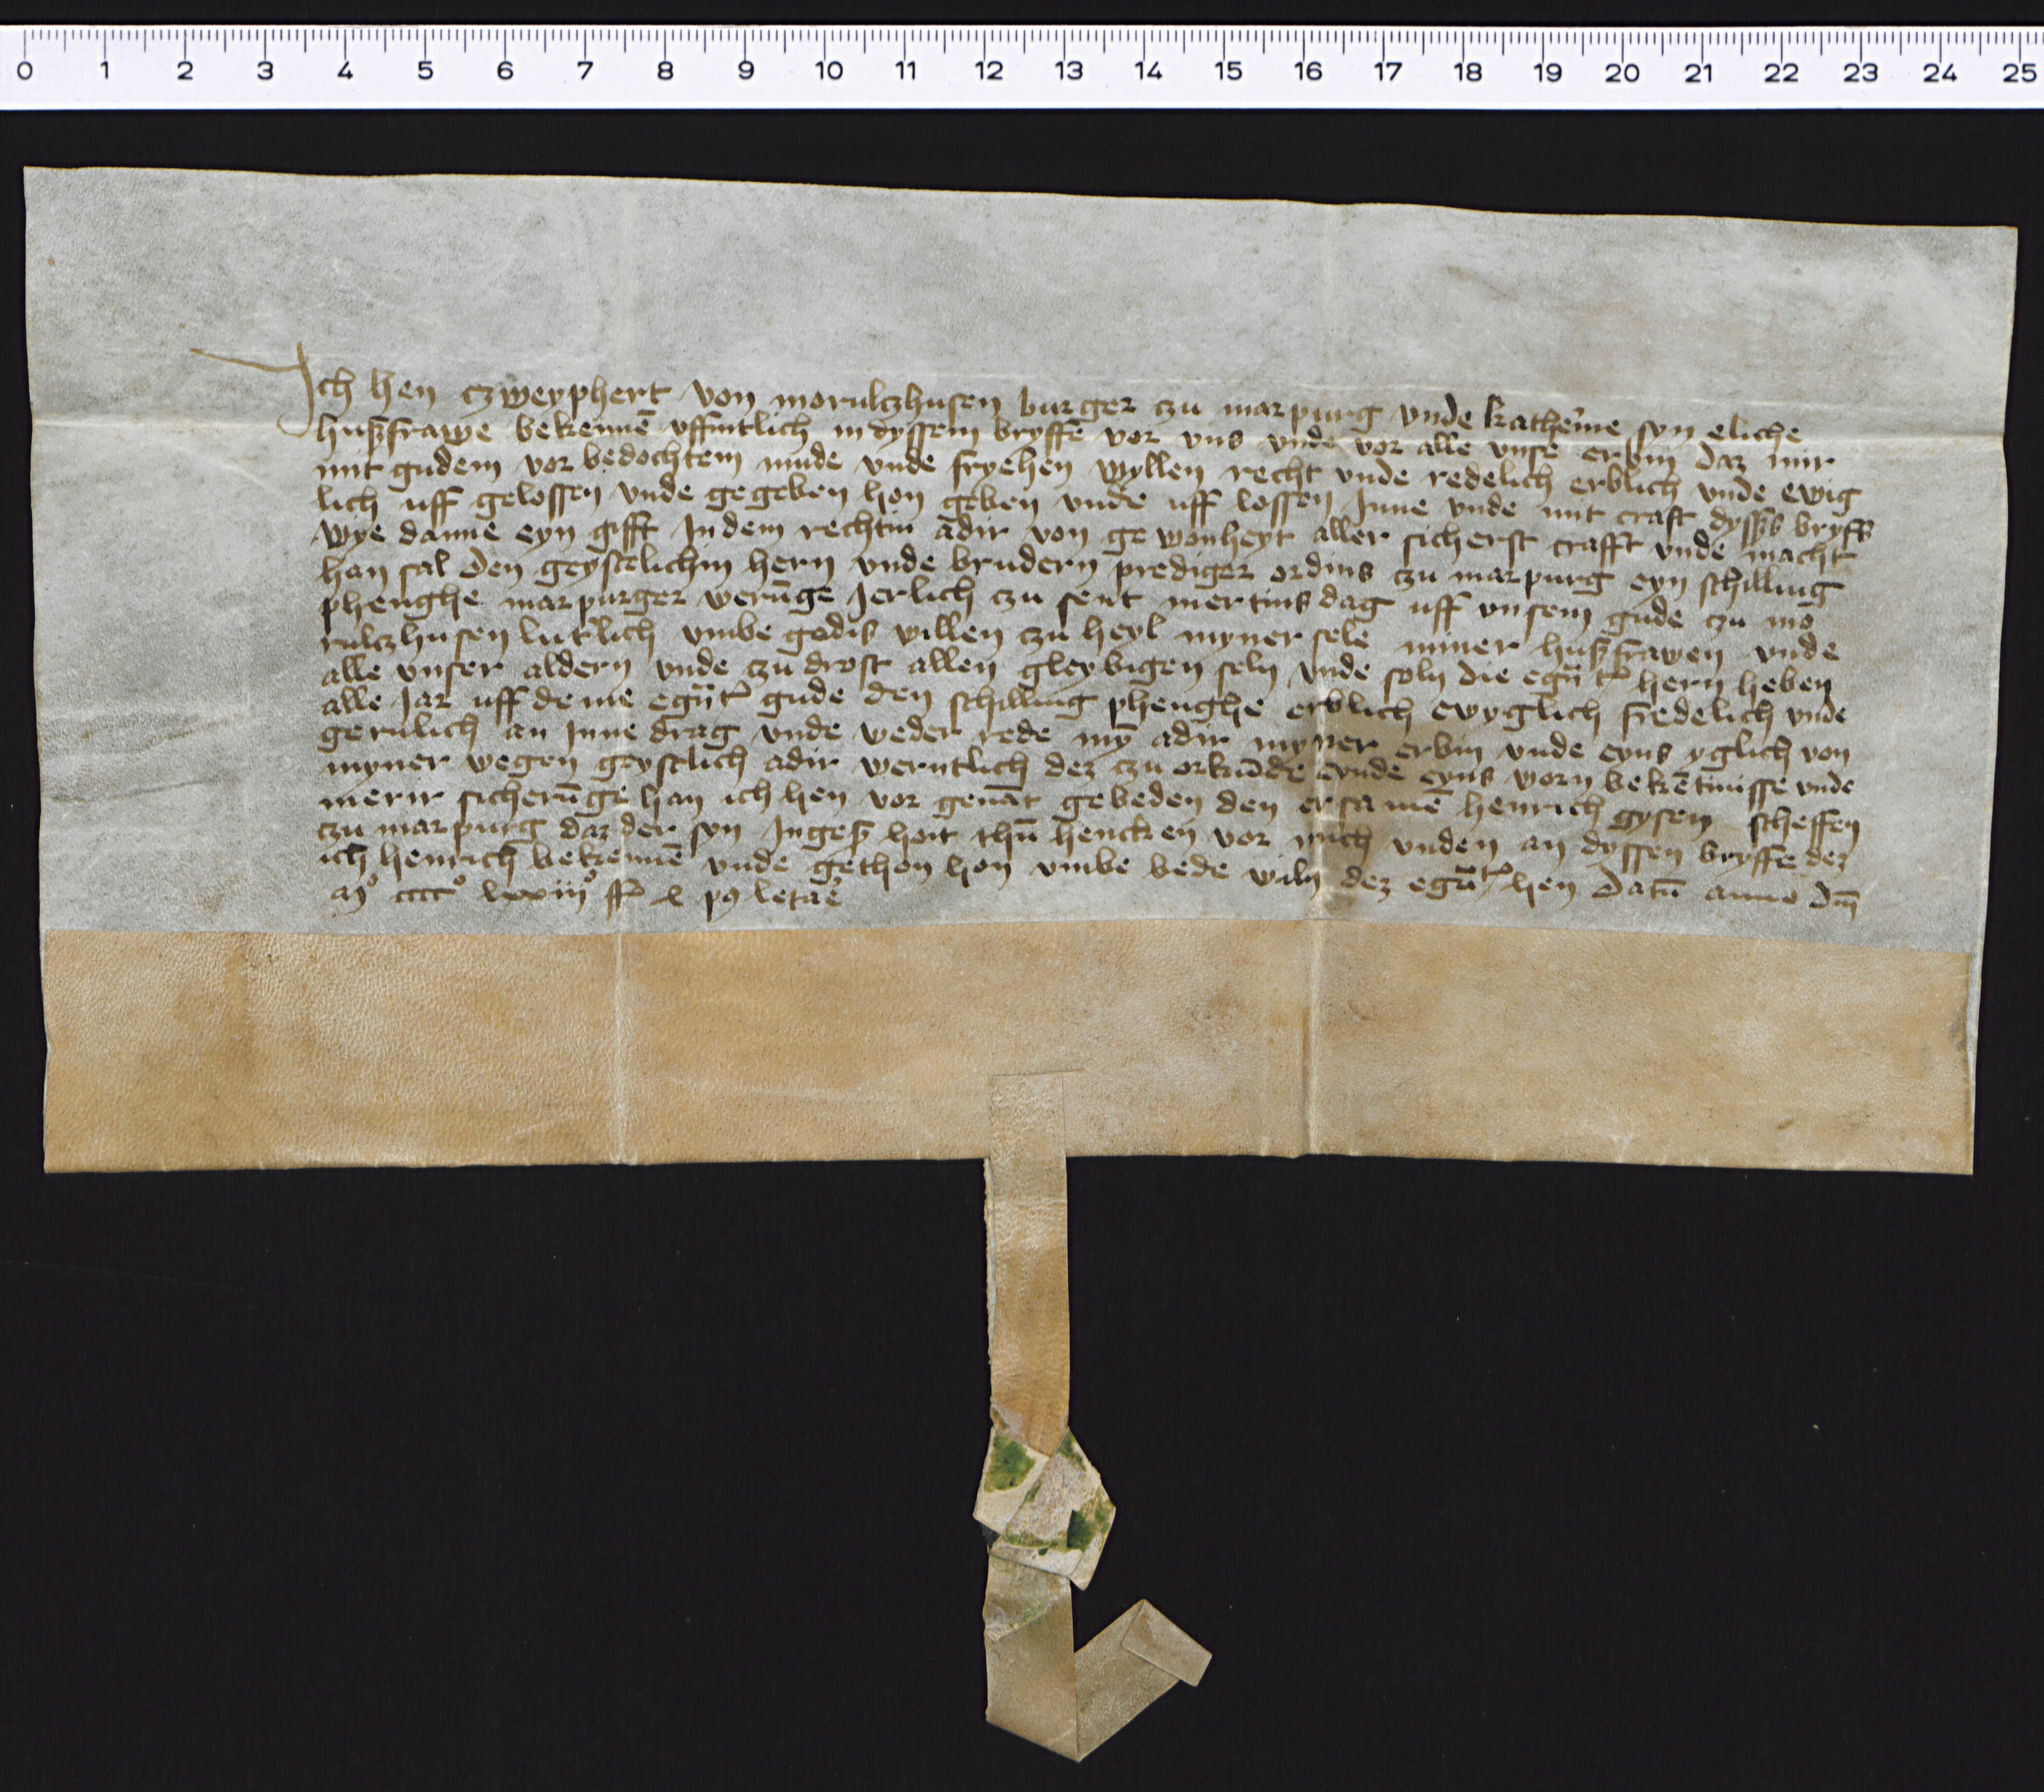 0 1 2 3 4 5 6 7 8 9 10 11 12 13 14 15 16 17 18 19 20 21 22 23 24 25
Ich Hen czweyphert von morulczhusen burger czu marpurg vnde katherīne syn eliche
husfrawe bekennē vffintlich in dyssem bryffe vor vns vnde vor alle vnse erbin daz mir
mit gudem vor bedochtem mude vnde fryehen wyllen recht vnde redelich erblich vnde ewig
lich uff gelossen vnde gegeben hon geben vnde uff lossen Inne vnde mit craft dysses bryffs
wye danne eyn gifft In dem rechtin adir von ge wonheyt aller sicherst crafft vnde macht
han sal den geystelichin hern vnde brudern prediger ordins czu marpurg eyn schilling
phenghe marpurger werūnge Jerlich czu sent mertins dag uff vnsem gude czu mo
rulczhusen lutlich vmbe godis willen czu heyl myner sele miner husfrawen vnde
alle vnser aldern vnde czu drost allen gleybigen seln vnde soln die egnāt hern heben
alle Jar uff deme egnāt gude den schilling phenghe erblich ewyglich fredelich vnde
gerulich an Inne drag vnde weder rede mȳ adir myner erbin vnde eyns yglich von
myner wegen geystlich adir werntlich dez czu orkūde eynde eyns worn bekētnisse vnde
merir sicherūnge han ich hen vor genāt gebeden den ersamē henrich gysen scheffen
czu marpurg daz der syn Ingeß hait thū hencken vor mich vnden an dyssen bryffe dez
ich henrich bekennē vnde gethon hon vmbe bede wiln dez egnāt hen Datū anno dm̄
mͦ ccccͦ lxxiiiͦ letaē